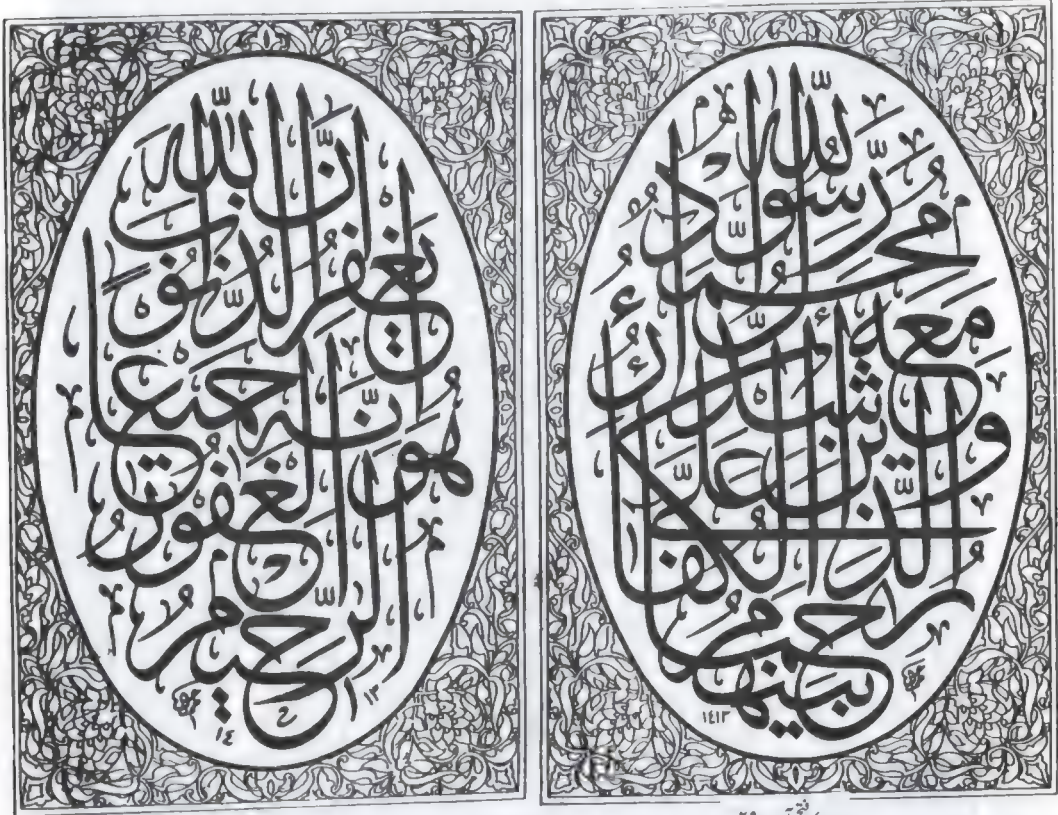 محمد رسول الله
والذين معه أشداء على الكفار
رحماء بينهم
١٤١٣
إن الله يغفر الذنوب
جميعا إنه هو
الغفور
الرحيم
١٤١٣